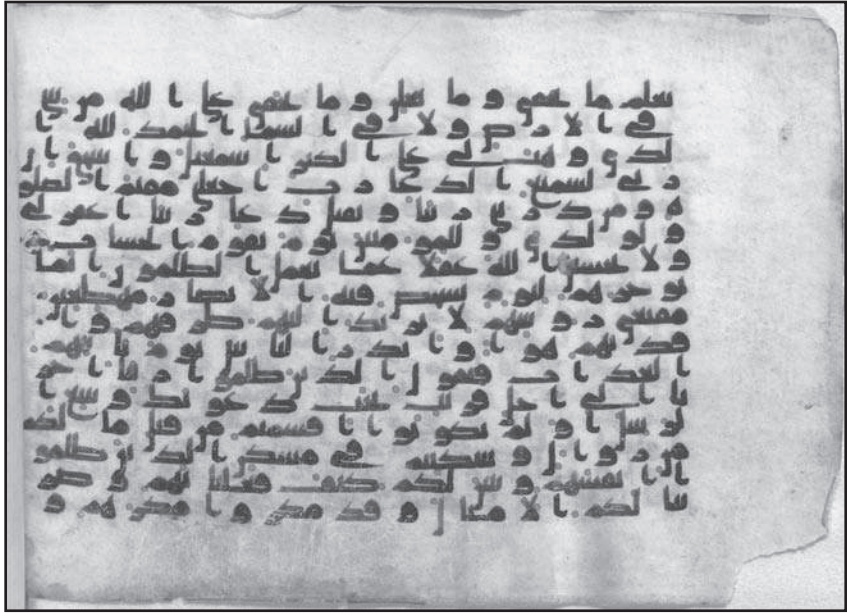 تعلم ما نخفى و ما نعلن و ما يخفى على الله من شى
فى الارض و لا فى السما الحمد لله ا
لذى وهب لى على الكبر اسمعيل و اسحق ان ر
بى لسميع الدعا رب اجعلنى مقيم الصلو
ه و من ذريتى ربنا و تقبل دعا ربنا اغفر لى
و لولدى و للمومنين يوم يقوم الحساب
و لا تحسبن الله غفلا عما يعمل الظلمون انما
يوخرهم ليوم تشخص فيه الابصار مهطعين
مقنعى روسهم لا يرتد اليهم طرفهم و ا
فدتهم هوا و انذر الناس يوم ياتيهم
العذاب فيقول الذين ظلموا ربنا اخر
نا الى اجل قريب نجب دعوتك و نتبع ا
لرسل اولم تكونوا اقسمتم من قبل ما لكم
من زوال و سكنتم فى مسكن الذين ظلموا
انفسهم و تبين لكم كيف فعلنا بهم و ضر
بنا لكم الامثال و قد مكروا مكرهم و